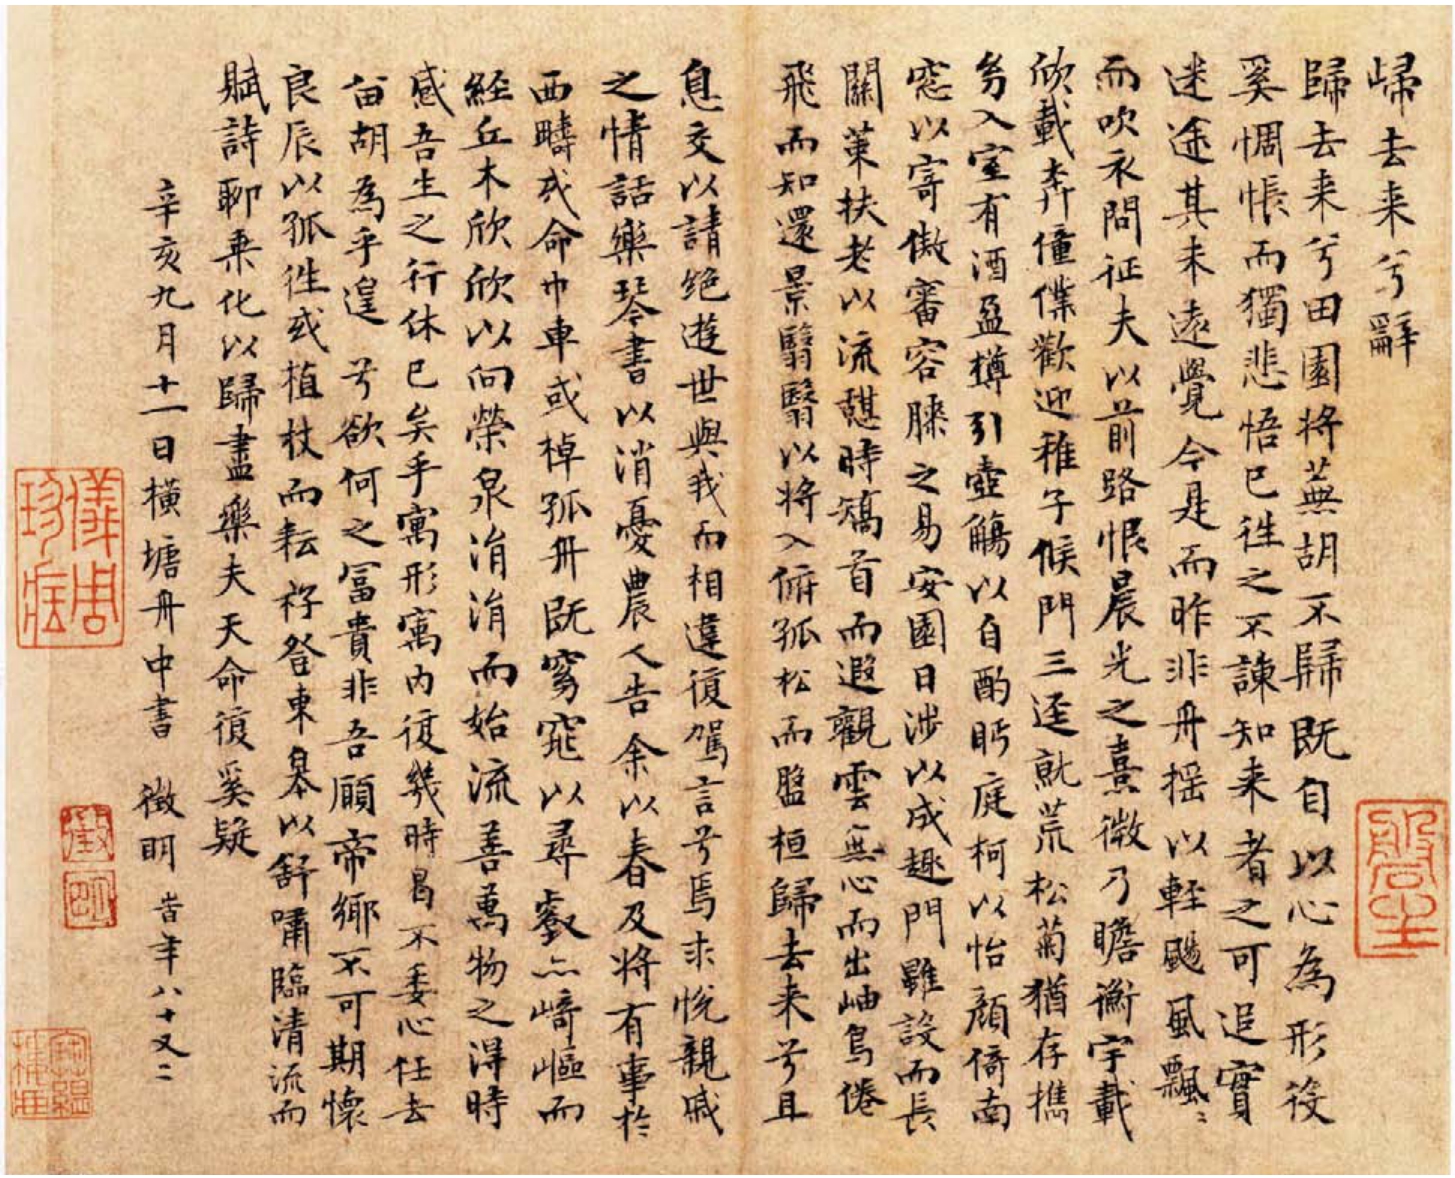 歸去来兮辭
歸去来兮田園将蕪胡不歸既自以心為形役
奚惆悵而獨悲悟已往之不諫知来者之可追寔
迷途其未遠覺今是而昨非舟揺以軽颺風飄〻
而吹衣問征夫以前路恨晨光之熹微乃瞻衡宇載
欣載奔僮僕歡迎稚子候門三逕就荒松菊猶存携
㓜入室有酒盈樽引壺觴以自酌眄庭柯以怡顔倚南
窓以寄傲審容膝之易安園日涉以成趣門雖設而長
關策扶老以流憇時矯首而遐觀雲無心而出岫鳥倦
飛而知還景翳翳以将入俯孤松而盤桓歸去来兮且
息交以請绝遊世與我而相違復駕言兮焉求悅親戚
之情話樂琴書以消憂農人告余以春及将有事於
西疇或命巾車或棹孤舟既窈窕以尋壑亦崎嶇而
經丘木欣欣以向榮泉涓涓而始流善萬物之得時
感吾生之行休已矣乎寓形寓内復幾時曷不委心任去
畱胡為乎遑兮欲何之冨貴非吾願帝鄉不可期懷
良辰以孤往或植杖而耘耔登東皋以舒嘯臨清流而
賦詩聊乗化以歸盡樂夫天命復奚疑
辛亥九月十一日橫塘舟中書 徵明 峕年八十又二
徵
明